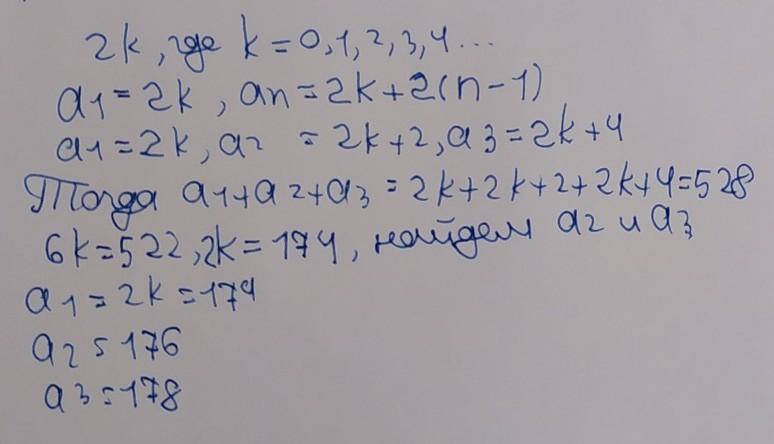 2k, где k=0,1,2,3,4...
a1=2k, an=2k+2(n-1)
a1=2k, a2 = 2k+2, a3=2k+4
Тогда a1+a2+a3=2k+2k+2+2k+4=528
6k=522, 2k=174, найдем a2 и a3
a1=2k=174
a2=176
a3=178